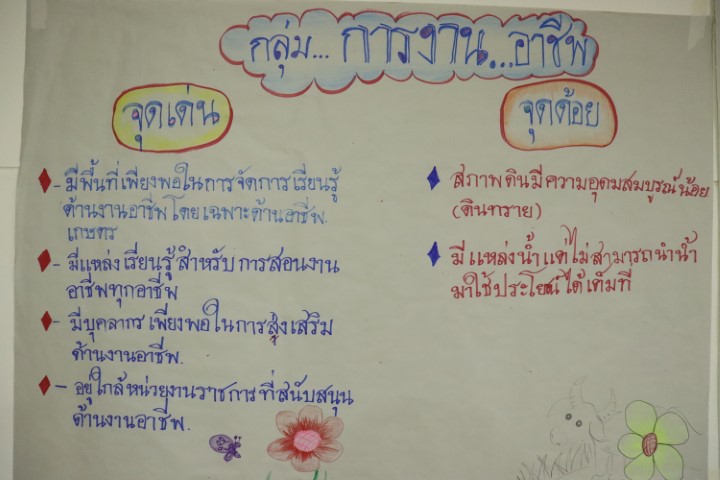 กลุ่ม... การงาน...อาชีพ
จุดเด่น
- มีพื้นที่เพียงพอในการจัดการเรียนรู้
ด้านงานอาชีพโดยเฉพาะด้านอาชีพ
เกษตร
- มีแหล่งเรียนรู้สำหรับการสอนงาน
อาชีพทุกอาชีพ
- มีบุคลากรเพียงพอในการส่งเสริม
ด้านงานอาชีพ.
- อยู่ใกล้หน่วยงานราชการที่สนับสนุน
ด้านงานอาชีพ.
จุดด้อย
สภาพดินมีความอุดมสมบูรณ์น้อย
(ดินทราย)
มีแหล่งน้ำแต่ไม่สามารถนำน้ำ
มาใช้ประโยชน์ได้เต็มที่